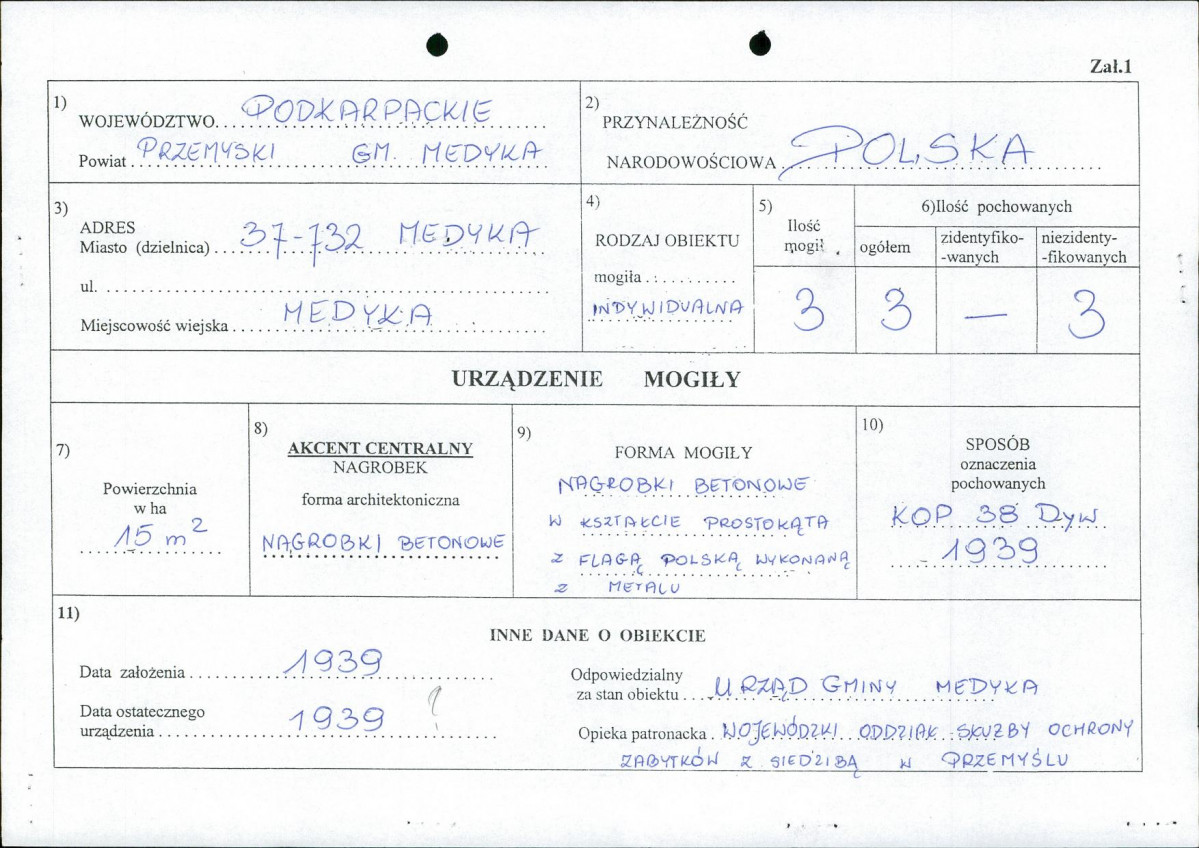 Zał.1
1)
WOJEWÓDZTWO PODKARPACKIE
Powiat PRZEMYSKI GM. MEDYKA
2)
PRZYNALEŻNOŚĆ
NARODOWOŚCIOWA POLSKA
3)
ADRES
Miasto (dzielnica) 37-732 MEDYKA
ul.
Miejscowość wiejska MEDYKA
4)
RODZAJ OBIEKTU
mogiła
INDYWIDUALNA
5)
Ilość
mogił
3
6)Ilość pochowanych
ogółem
3
zidentyfiko-
-wanych
—
niezidenty-
-fikowanych
3
URZĄDZENIE MOGIŁY
7)
Powierzchnia
w ha
15 m2
8)
AKCENT CENTRALNY
NAGROBEK
forma architektoniczna
NAGROBKI BETONOWE
9)
FORMA MOGIŁY
NAGROBKI BETONOWE
W KSZTAŁCIE PROSTOKĄTA
Z FLAGĄ POLSKĄ WYKONANĄ
Z METALU
10)
SPOSÓB
oznaczenia
pochowanych
KOP 38 Dyw
1939
11)
INNE DANE O OBIEKCIE
Data założenia 1939
Data ostatecznego
urządzenia 1939 ?
Odpowiedzialny
za stan obiektu URZĄD GMINY MEDYKA
Opieka patronacka WOJEWÓDZKI ODDZIAŁ SŁUŻBY OCHRONY
ZABYTKÓW Z SIEDZIBĄ W PRZEMYŚLU